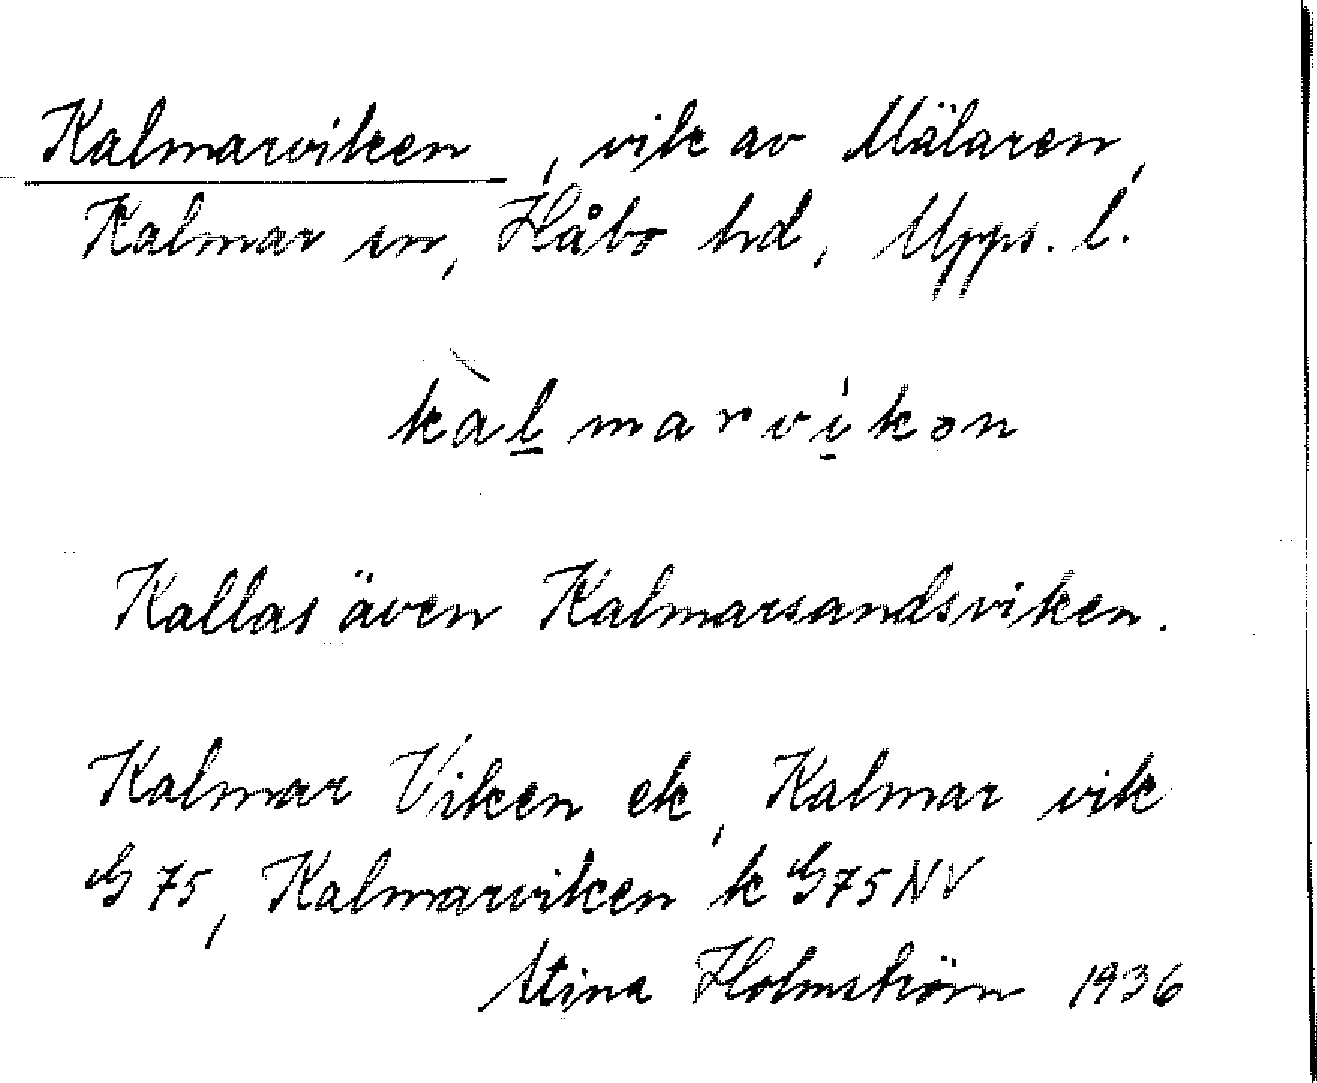 Kalmarviken, vik av Mälaren,
Kalmar sn, Håbo hd, Upps. l.
kàl̲marvi̲kən
Kallas även Kalmarsandsviken.
Kalmar Viken ek, Kalmar vik
G 75, Kalmarviken k G75NV
Stina Holmström 1936